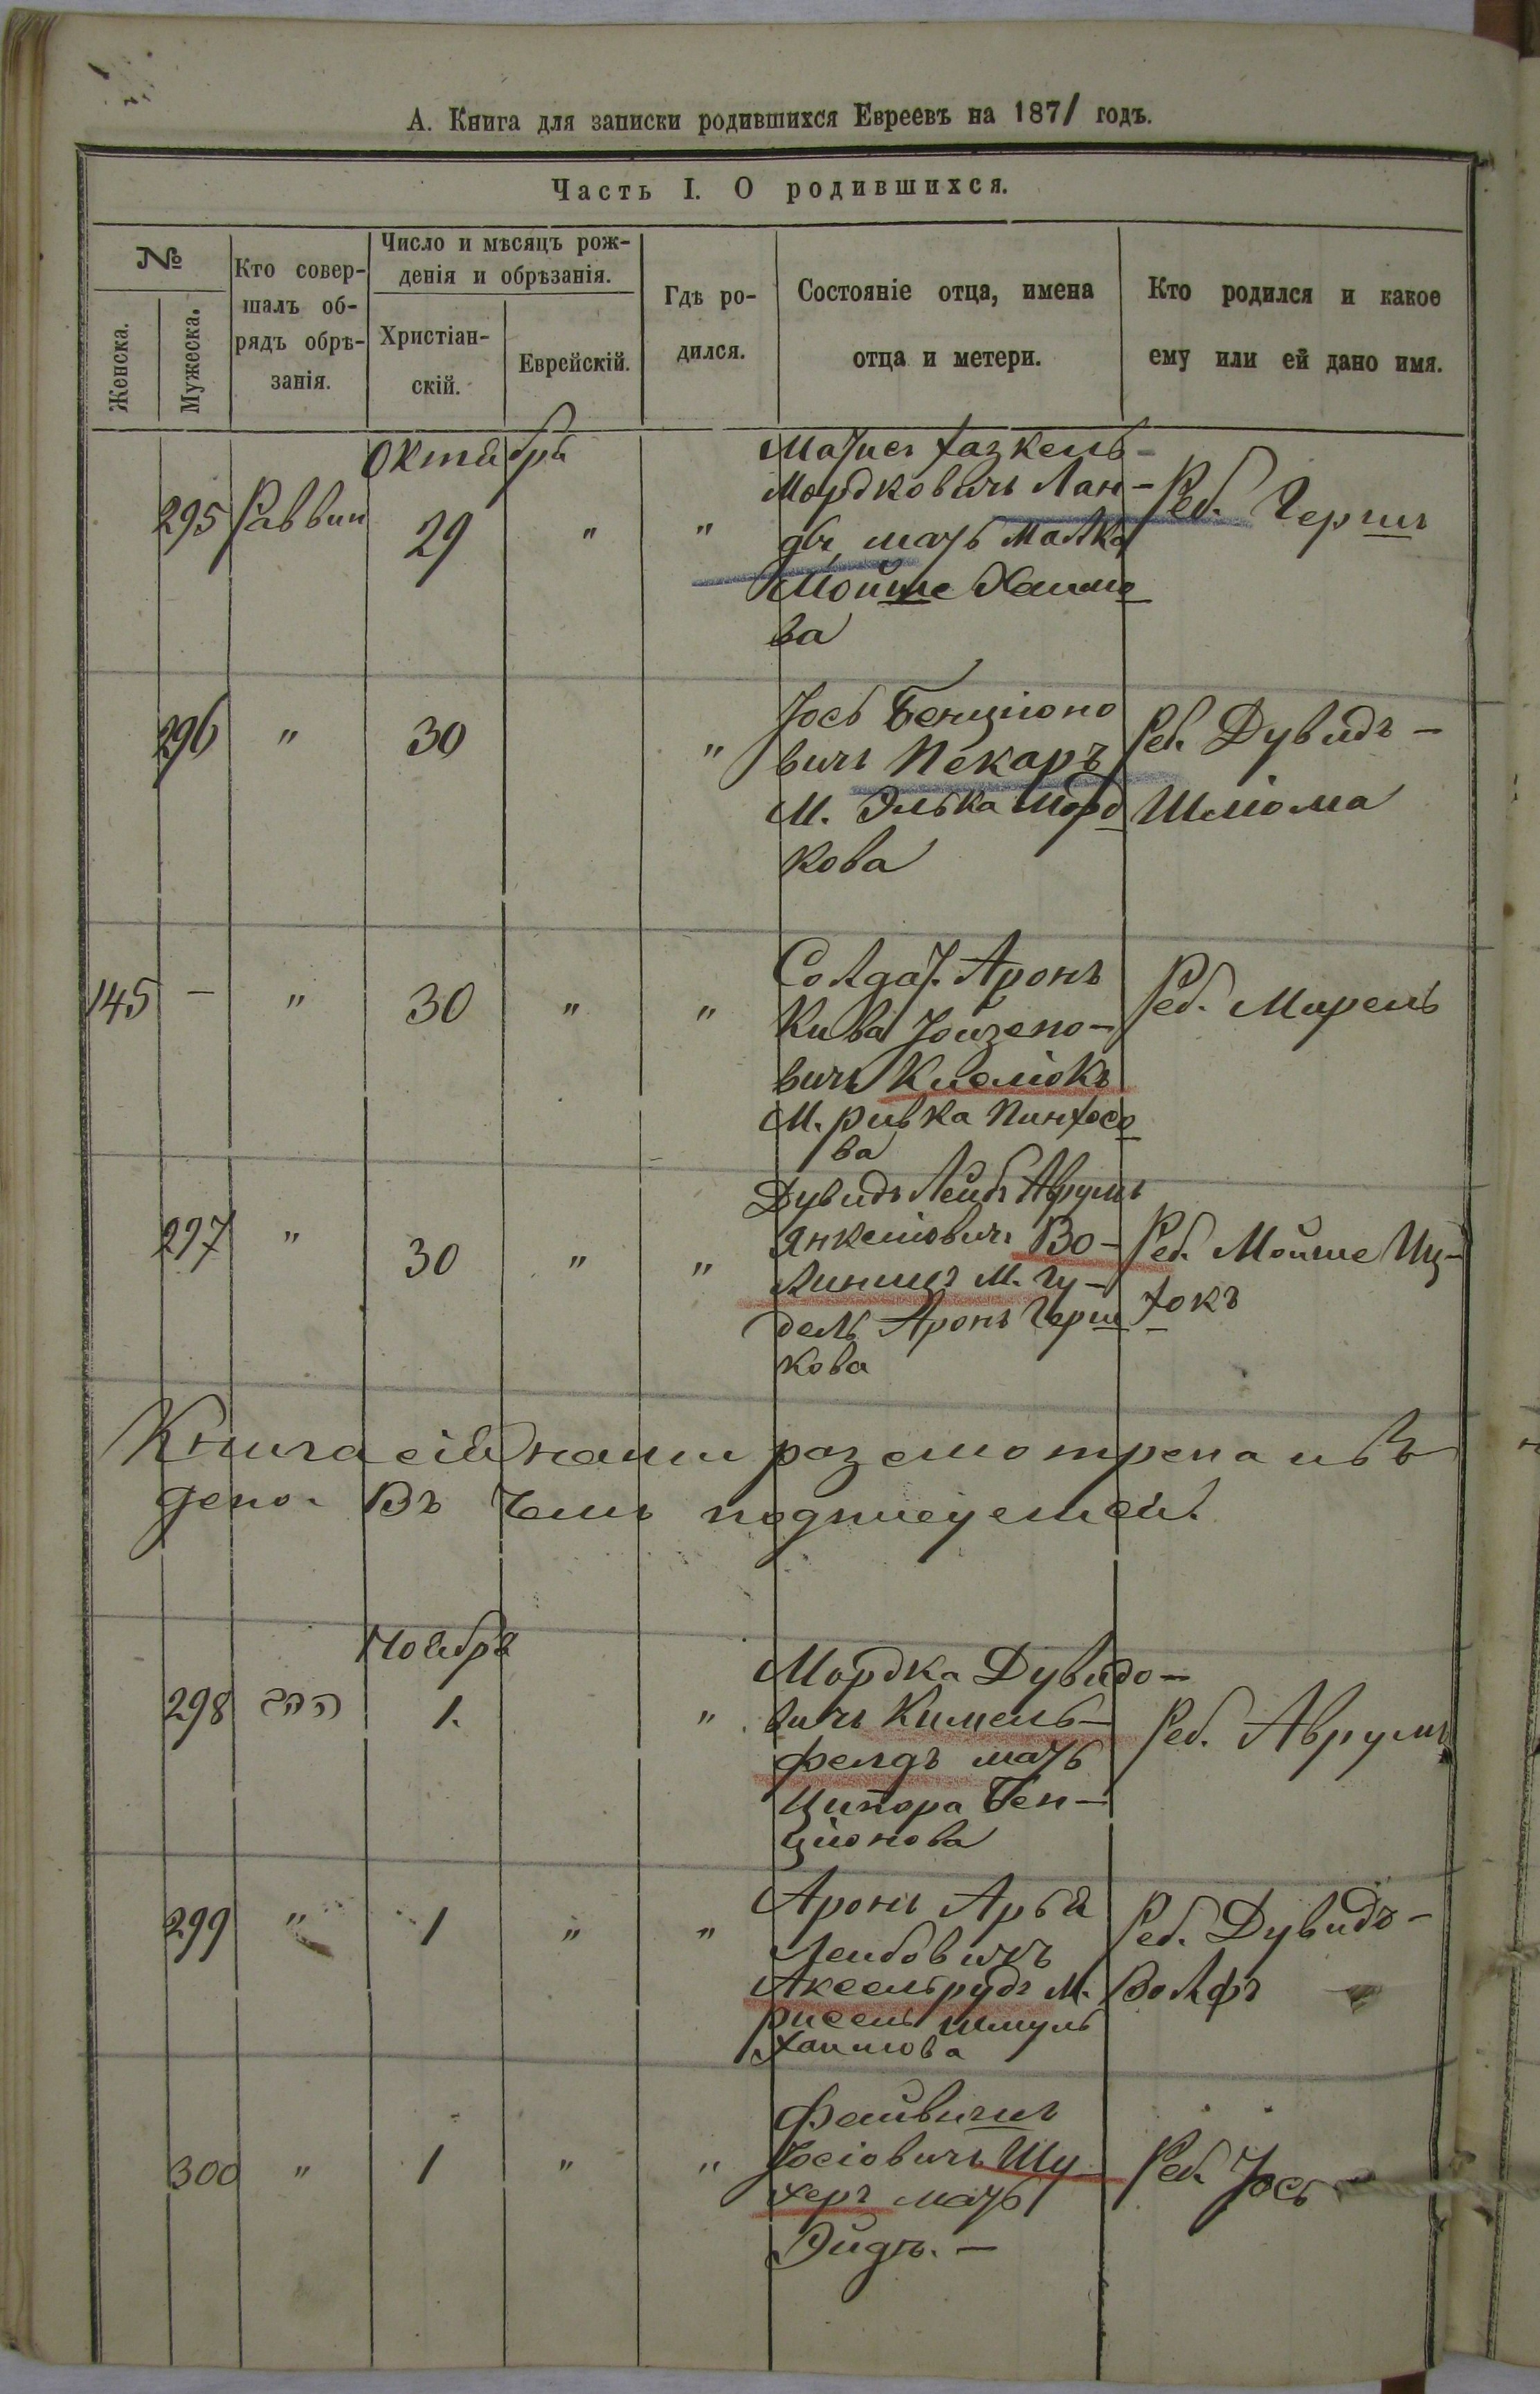 А. Книга для записки родившихся Евреевъ на 1871 годъ.
Часть I. О родившихся.
№
Женска.
Мужеска.
Кто совер-
шалъ об-
рядъ обрѣ-
занія.
Число и мѣсяцъ рож-
денія и обрѣзанія.
Христіан-
скій.
Еврейскій.
Гдѣ ро-
дился.
Состояніе отца, имена
отца и метери.
Кто родился и какое
ему или ей дано имя.
Октября
295 Раввин 29 " "
Матис Хазкель-
Мордковичъ Лан-
дь, мать Малка
Мойше Хаимо
ва
Реб. Герш
296 " 30 "
Іось Бенціоно
вичъ Пекаръ
М. Элька Морд
кова
Реб. Дувидъ -
Шліома
145 - " 30 " "
Солдат. Аронъ
Кива Іойзепо-
вичъ
М. ривка Пинхосо
ва
Реб. Мирель
297 " 30 " "
Дувидъ Лейбъ Аврумъ
Янкелiовичъ Во-
линицъ М. Гу-
дель Аронъ Герш
кова
Реб. Мойше Иц-
хокъ
Книга сія нами разсмотрена и въ
Въ чемъ подписуемся.
Ноября
298 1. "
Мордка Дувидо-
вичъ Кимель-
фелдъ мать
Ципора Бен-
ціонова
Реб. Аврумъ
299 " 1 " "
Аронъ Арья
Лейбовичъ
Аксельрудъ М.
рисель Шмуль
Хаимова
Реб. Дувидъ-
Волфъ
300 " 1 " "
Фаивишъ
Іосіовичъ Шу
херъ мать
Эйдъ. -
Реб. Іось